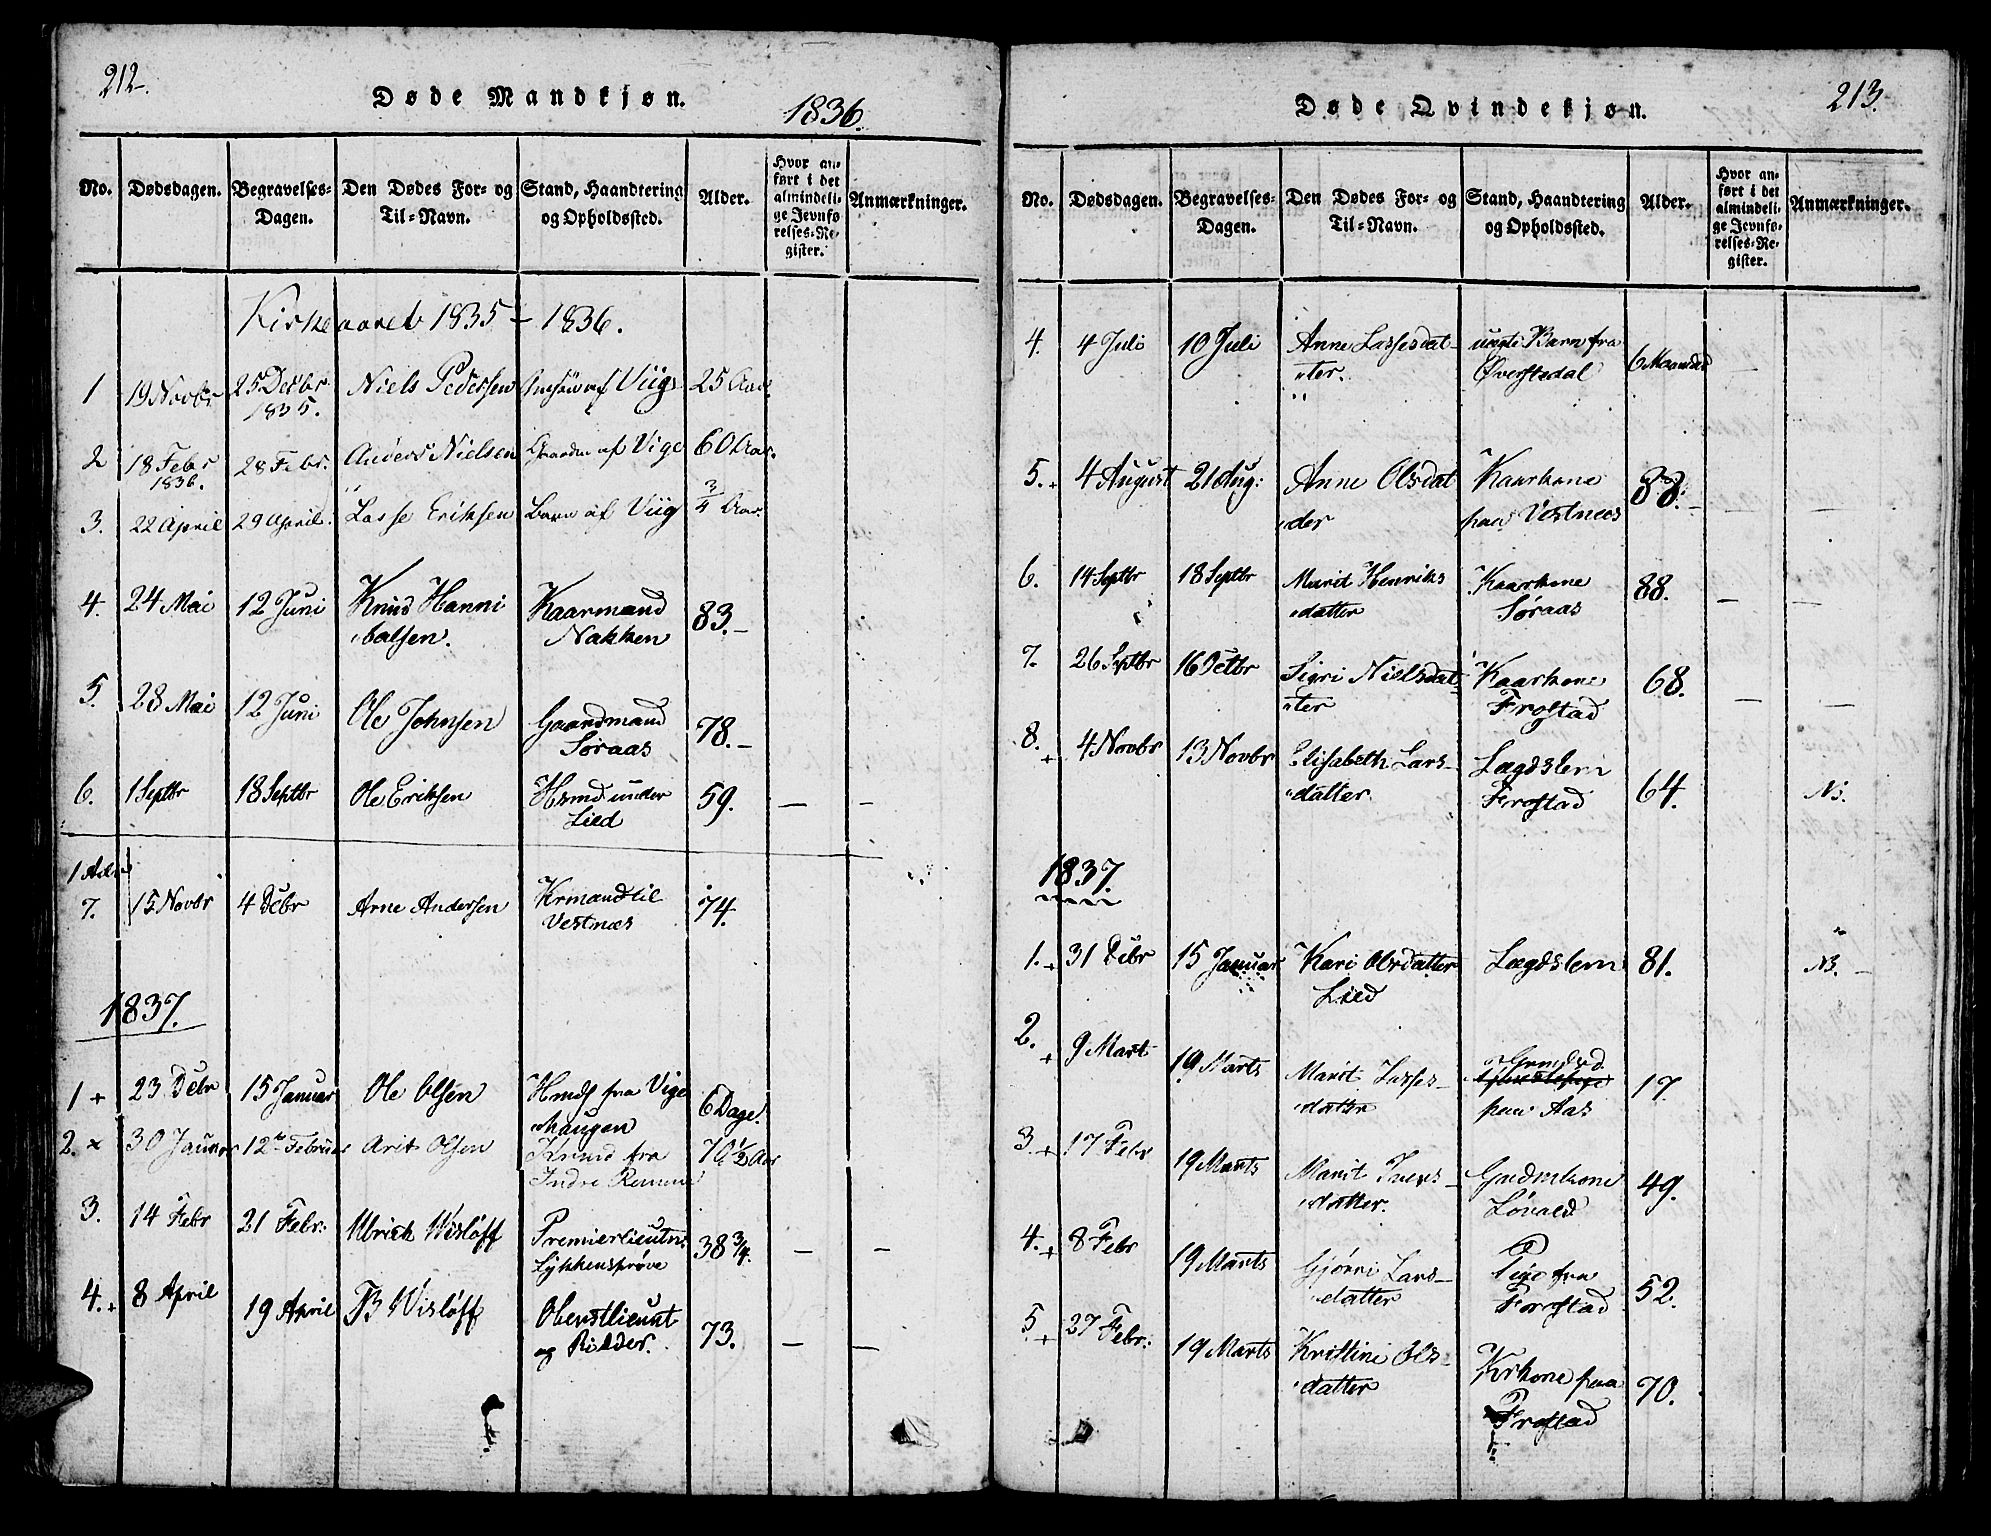 212.
Døde Mandkjøn.
1836.
No.
Dødsdagen.
Begravelses-
Dagen.
Den Dødes For- og
Til-Navn.
Stand, Haandtering
og Opholdssted.
Alder.
Hvor an-
ført i det
almindeli-
ge Jevnfø-
relses-Re-
gister.
Anmærkninger.
Kirkeaaret 1835 - 1836.
1 19 Novbr 25 Decbr 1835. Niels Pedersen af Viig 25 Aar.
2 18 Febr 1836. 28 Febr. Anders Nielsen af Vige 60 Aar.
3. 22 April 29 April. Lasse Eriksen Barn af Viig 3/4 Aar.
4. 24 Mai 12 Juni Knud Hanni
balsen. Kaarmand
Nakken 83. -
5. 28 Mai 12 Juni Ole Johnsen Gaardmand
Søraas 78. -
6. 1 Septbr 18 Septbr Ole Eriksen Hsmd under
Lied 59. - -
7. 15 Novbr 4 Debr Arne Andersen Krmand til
Vestnæs 74.
1837.
1 + 23 Debr 15 Januar Ole Olsen fra Vige
Haugen 6 Dage.
2. × 30 Januar 12te Februar Arit Olsen Krmd fra
Indre Remme 70 1/2 Aar
3. 14 Febr 21 Febr: Ulrich Wisløff Premierlieutn:
Lykkensprøve 38 3/4. - -
4. + 8 April 19 April B Wisløff Oberstlieunt
og Ridder. 73. - -
Døde Qvindekjøn.
213.
No.
Dødsdagen.
Begravelses-
Dagen.
Den Dødes For- og
Til-Navn.
Stand, Haandtering
og Opholdssted.
Alder.
Hvor an-
ført i det
almindeli-
ge Jevnfø-
relses-Re-
gister.
Anmærkninger.
4. 4 Juli 10 Juli Anne Lassesdat-
"ter. uægte Barn fra
Øverstedal 6 Maaneder
5. + 4 August 21 Aug: Anne Olsdat
"der Kaarkone
paa Vestnæs 88. -
6. 14 Septbr 18 Septbr Marit Henriks
"datter Kaarkone
Søraas 88. - -
7. 26 Septbr 16 Octbr Sigri Nielsdat-
"ter Kaarkone
Frostad 68. - -
8. + 4 Novbr 13 Novbr Elisabeth Lars-
"datter. Lægdslem
Frostad 64. NB.
1837.
1. + 31 Debr 15 Januar Kari Olsdatter
Lied Lægdslem 81. NB. -
2. + 9 Mart 19 Marts Marit Lasses-
"datter paa Aas 17
3. + 17 Febr 19 Marts Marit Ivers-
"datter. Grdmkone
49.
4. + 8 Febr 19 Marts Gjørri Lars-
"datter Pige fra
Frostad 52.
5. + 27 Febr: 19 Marts Kristine Ols-
"datter Krkone paa
Frostad 70.